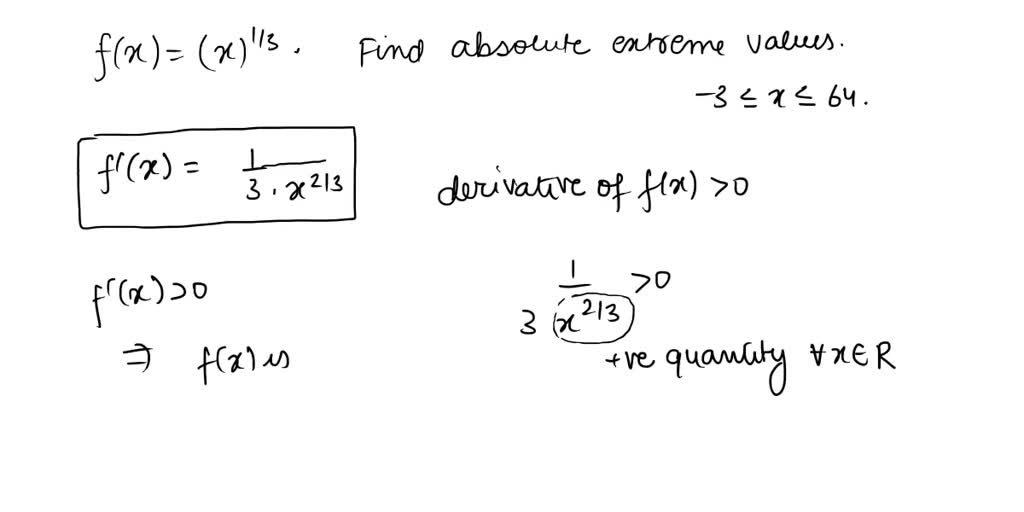 f(x) = (x)^1/3 . Find absolute extreme values.
-3 ≤ x ≤ 64.
f'(x) = 1/(3 . x^2/3)
derivative of f(x) >0
f'(x) >0
1/(3 x^2/3) >0
⇒ f(x) is
+ve quantity ∀x∈R